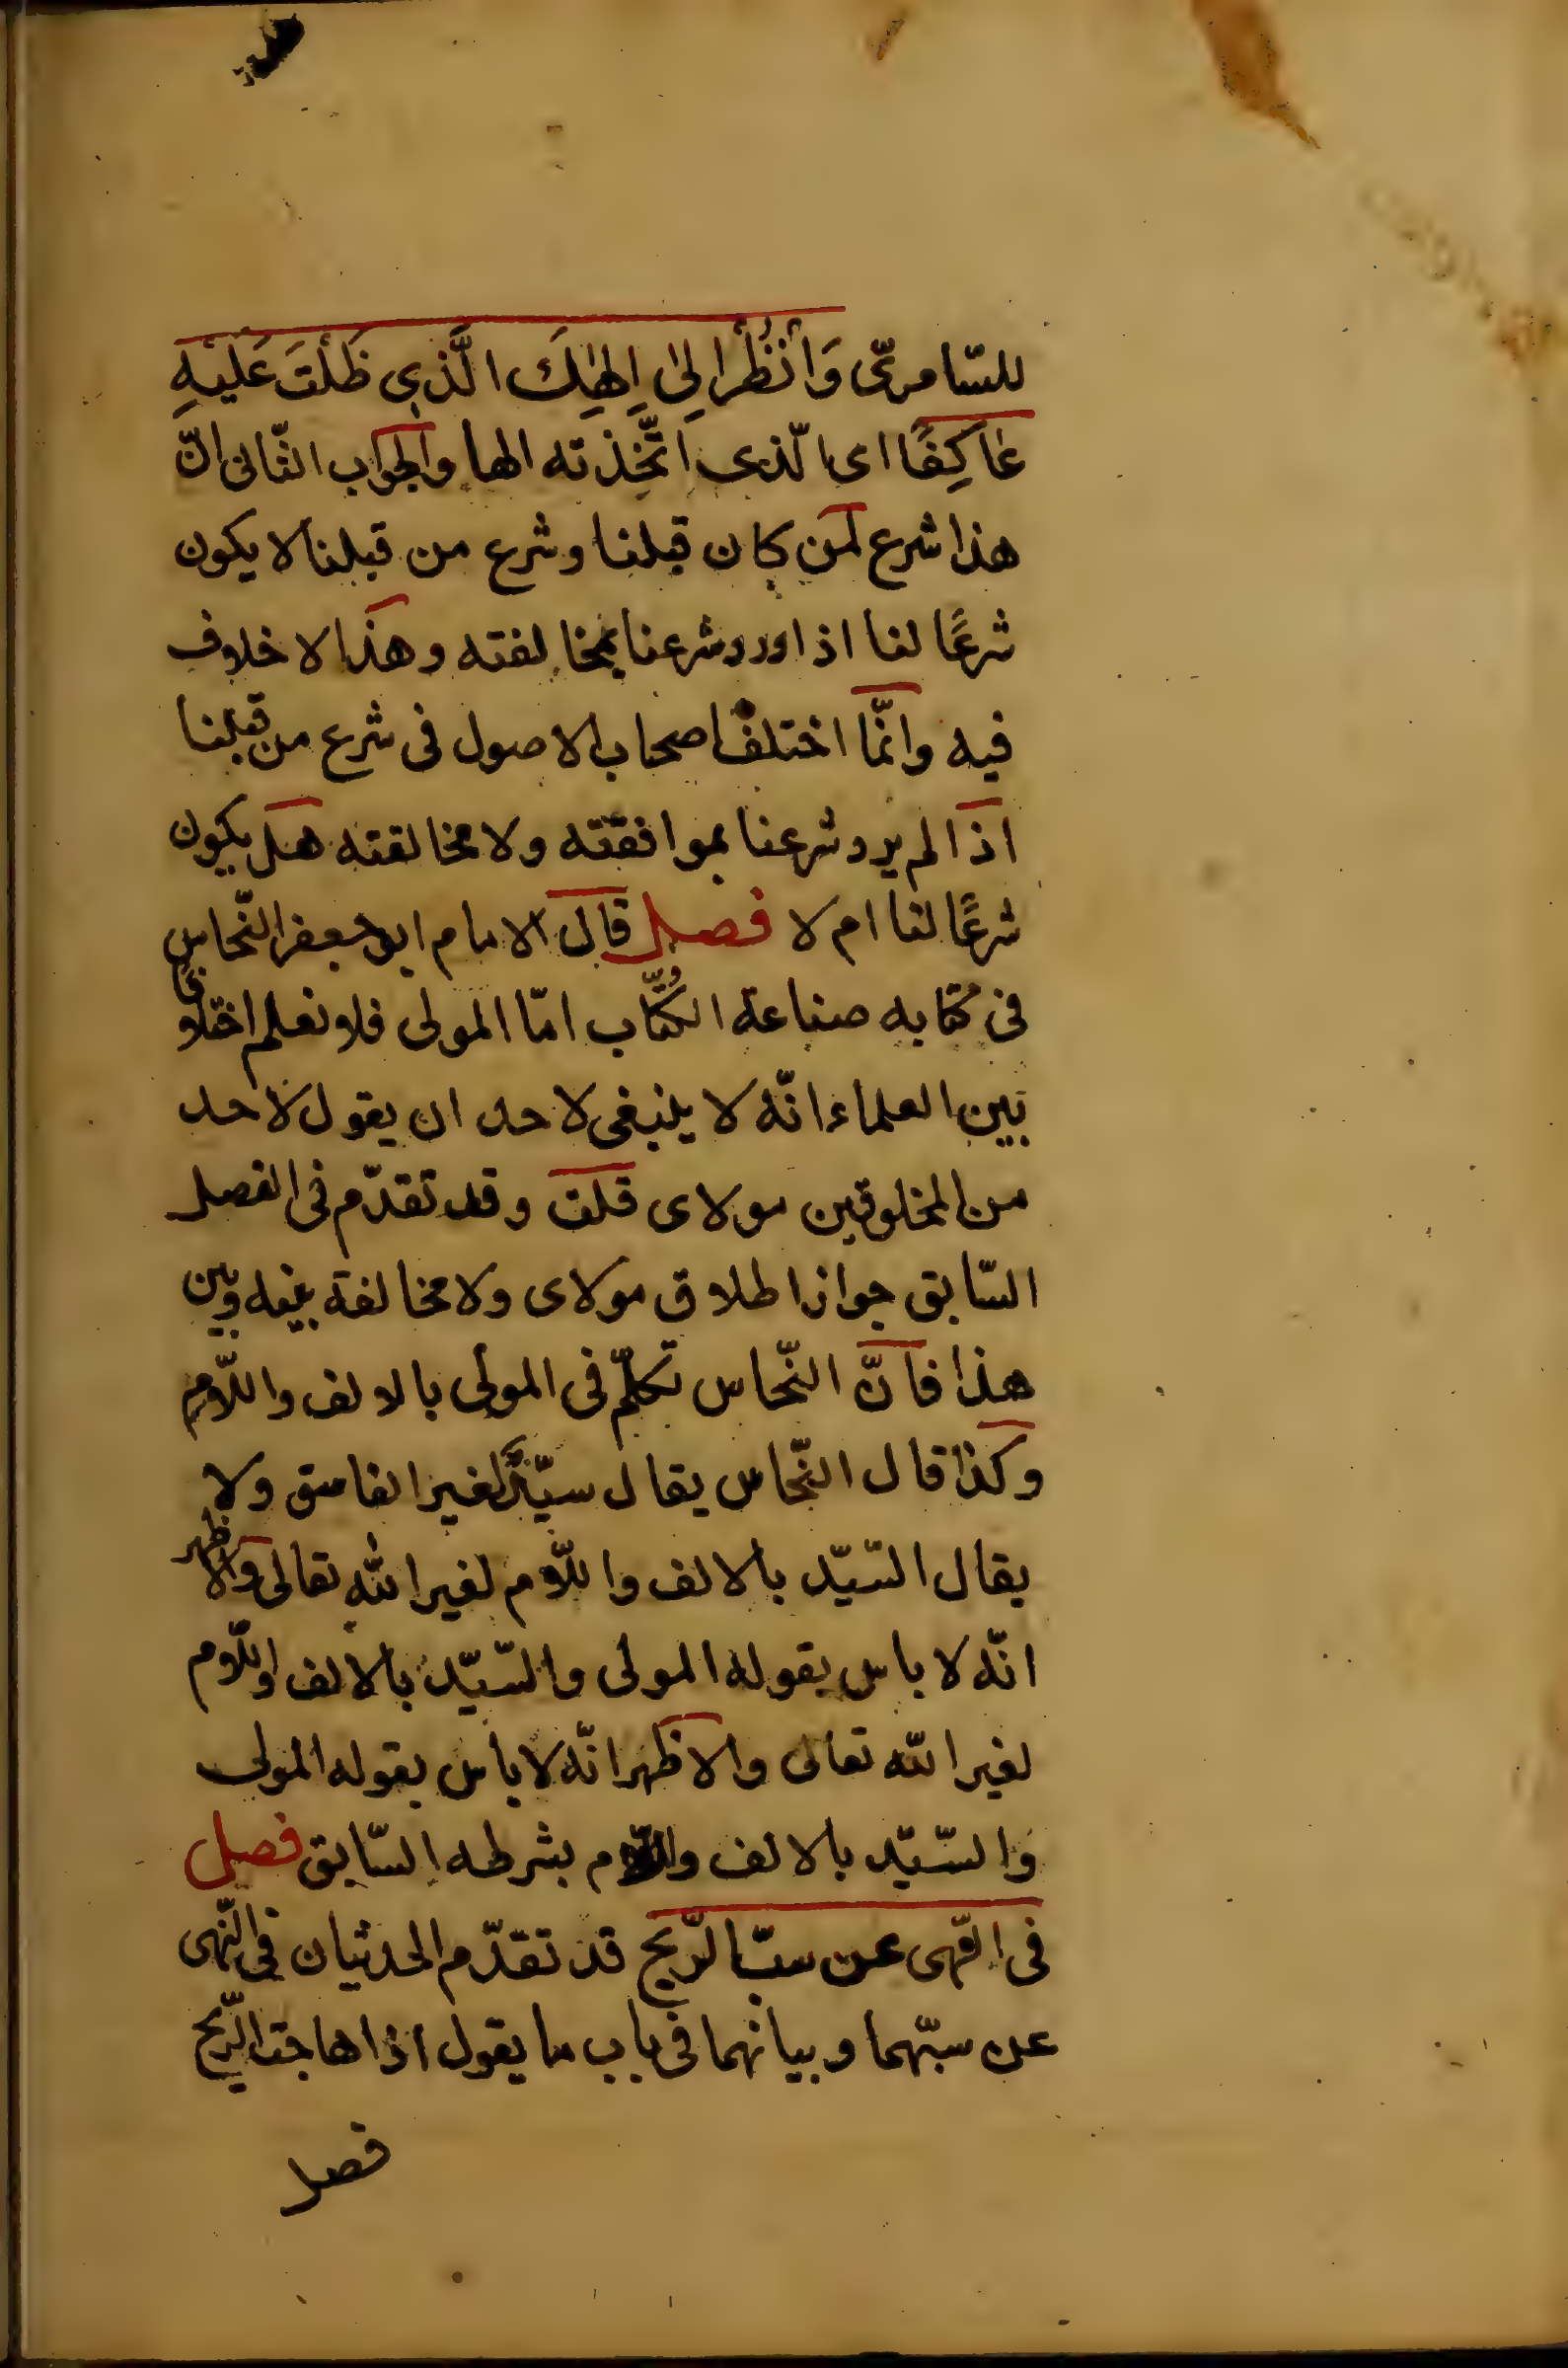 للسّامرىّ وَانْظُرْ اِلىٰ اِلٰهِكَ الَّذِى ظَلْتَ عَلَيْهِ
عَاكِفًا اى الّذى اتّخذته الها والجواب الثّانى انّ
هذا شرع لمن كان قبلنا وشرع من قبلنا لا يكون
شرعًا لنا اذا ورد شرعنا بمخالفته وهذا لا خلاف
فيه وانّما اختلف اصحاب الاصول فى شرع من قبلنا
اذا لم يرد شرعنا بموافقته ولا مخالفته هل يكون
شرعًا لنا ام لا فصل قال الامام ابو جعفر النّحاس
فى كتابه صناعة الكُتّاب امّا المولى فلا نعلم اختلافًا
بين العلماء انّه لا ينبغى لاحد ان يقول لاحد
من المخلوقين مولاى قلت وقد تقدّم فى الفصل
السّابق جواز اطلاق مولاى ولا مخالفة بينه وبين
هذا فانّ النّحاس تكلّم فى المولى بالالف واللّام
وكذا قال النّحاس يقال سيّد لغير الفاسق ولا
يقال السّيّد بالالف واللّام لغير الله تعالى والاظهر
انّه لا باس بقوله المولى والسّيّد بالالف واللّام
لغير الله تعالى والاظهر انّه لا بأس بقوله المولى
والسّيّد بالالف واللّام بشرطه السّابق فصل
فى النّهى عن سبّ الرّيح قد تقدّم الحديثان فى النّهى
عن سبّهما وبيانهما فى باب ما يقول اذا هاجت الرّيح
فصل